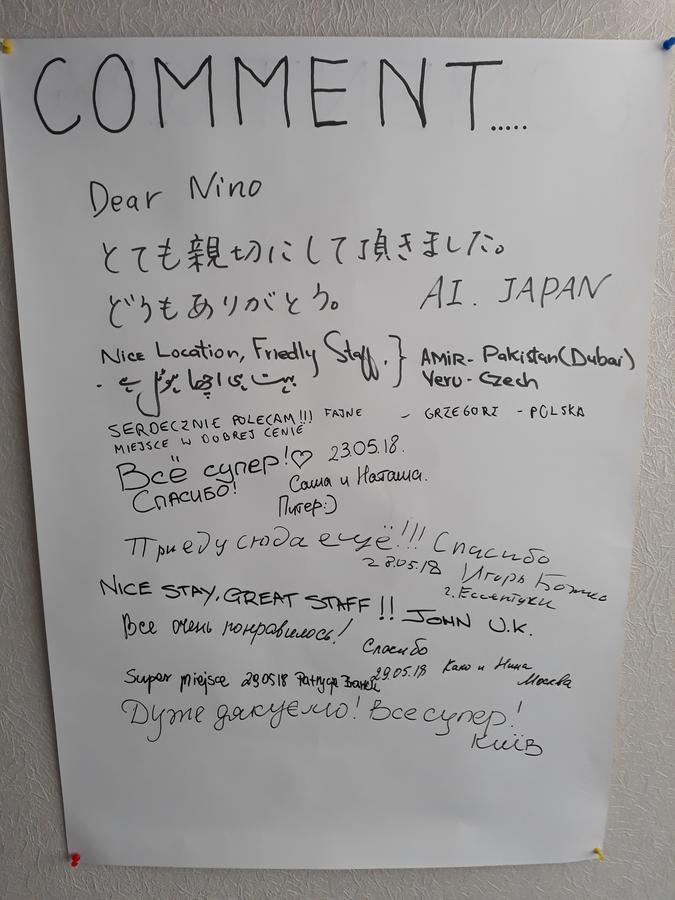 COMMENT.....
Dear Nino
とても親切にして頂きました。
どうもありがとう。 AI. JAPAN
Nice Location, Friedly Staff. } AMiR- Pakistan(Dubai)
بہت ہی اچھا ہوٹل ہے - Veru-Czech
SERDECZNIE POLECAM!!! FAJNE - GRZEGORZ - POLSKA
MIEJSCE W DOBREJ CENIE
Всё супер!♡ 23.05.18.
Спасибо! Саша и Наташа.
Питер:)
Приеду сюда ещё!!! Спасибо
28.05.18 Игорь
г. Ессентуки
NICE STAY, GREAT STAFF!! JOHN U.K.
Все очень понравилось!
Спасибо
29.05.18 Како и Нина
Москва
Super miejsce 29.05.18
Дуже дякуємо! Все супер!
Київ